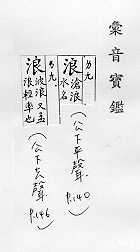 彙音寶鑑
ㄌ九
浪 滄浪
水名
(公下平聲 p.140)
ㄌ九
浪 波浪又孟
浪輕率也
(公下去聲 p.146)